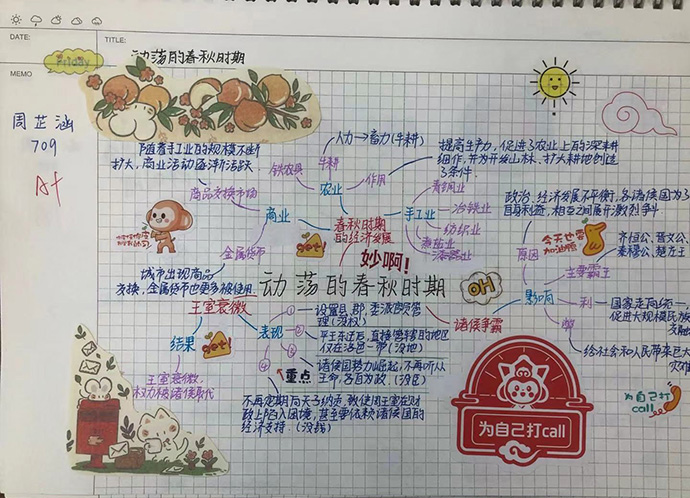 DATE:
TITLE:
MEMO
Friday
动荡的春秋时期
周芷涵
709
A+
随着手工业的规模不断
扩大,商业活动逐渐活跃
商品交换市场
商业
金属货币
城市出现商品
交换,金属货币也更多被使用
铁农具
牛耕
人力→畜力(牛耕)
农业
作用
提高生产力,促进了农业上的深耕
细作,并为开发山林、扩大耕地创造
了条件
春秋时期
的经济发展
get!
手工业
青铜业
冶铁业
纺织业
煮盐业
漆器业
妙啊!
动荡的春秋时期
OH
政治、经济发展不平衡,各诸侯国为了
自身利益,相互之间展开激烈争斗
原因
今天也要
加油鸭
齐桓公、晋文公
秦穆公、楚庄王
主要霸主
影响
利
国家走向统一
促进大规模民族
弊
给社会和人民带来巨大
灾难
诸侯争霸
王室衰微
结果
get!
王室衰微,
权力被诸侯取代
表现
①
设置县、郡,委派官员管
理(没权)
②
平王东迁后,直接管辖的地区
仅在洛邑一带(没地)
③
诸侯国势力崛起,不再听从
王命,各自为政.(没臣)
④
重点
不再定期向天子纳贡,致使周王室在财
政上陷入困境,甚至要依赖诸侯国的
经济支持.(没钱)
为自己打call
为自己打
call